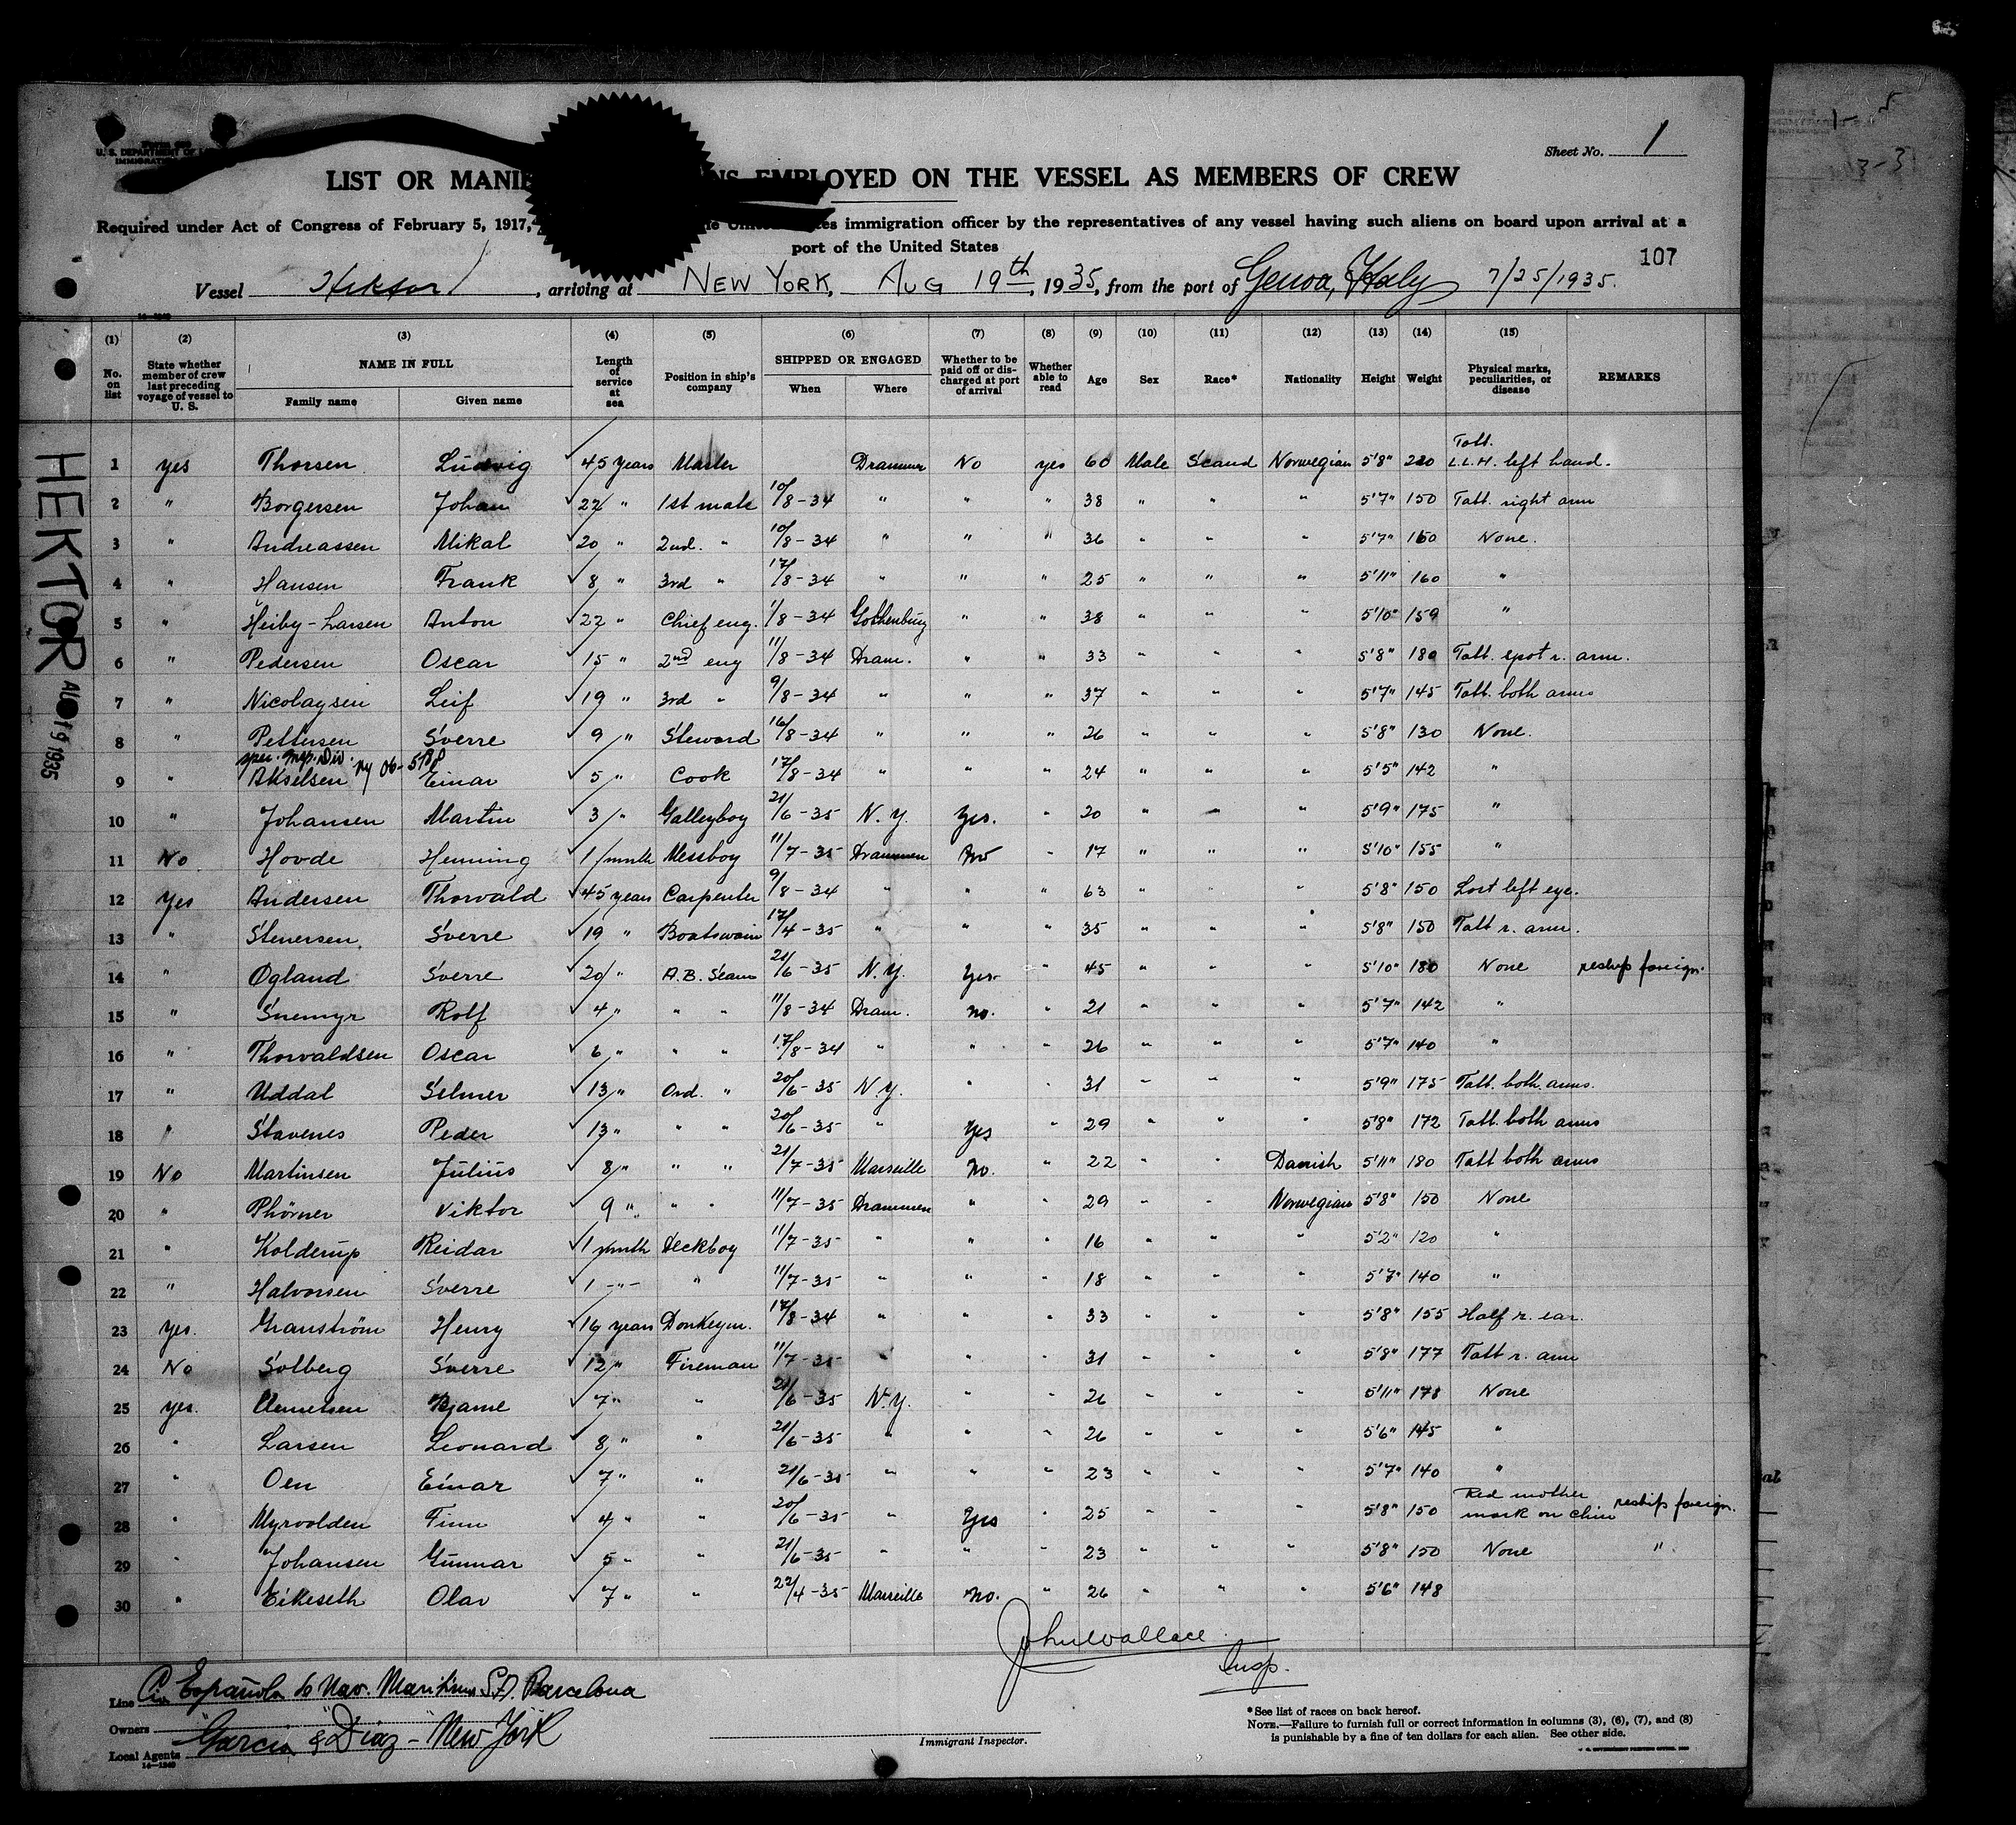 Sheet No. 1
U. S. DEPARTMENT OF
LIST OR EMPLOYED ON THE VESSEL AS MEMBERS OF CREW
Required under Act of Congress of February 5, 1917, immigration officer by the representatives of any vessel having such aliens on board upon arrival at a
port of the United States
107
Vessel Hektor, arriving at NEW YORK, AUG 19th, 1935, from the port of Genoa, Italy 7/25/1935.
(1) (2) (3) (4) (5) (6) (7) (8) (9) (10) (11) (12) (13) (14) (15)
No. on list State whether member of crew last preceding voyage of vessel to U. S. NAME IN FULL Family name Given name Length of service at sea Position in ship's company SHIPPED OR ENGAGED When Where Whether to be paid off or discharged at port of arrival Whether able to read Age Sex Race* Nationality Height Weight Physical marks, peculiarities, or disease REMARKS
HEKTOR
AUG 19 1935
1 yes Thorsen Ludvig 45 years Master Drammen No yes 60 Male Scand Norwegian 5'8" 220 Tatt. L.L.H. left hand.
2 " Borgersen Johan 22 " 1st mate 10/8-34 " " " 38 " " " 5'7" 150 Tatt. right arm
3 " Andreassen Mikal 20 " 2nd. " 10/8-34 " " " 36 " " " 5'7" 160 None.
4 " Hansen Frank 8 " 3rd " 17/8-34 " " " 25 " " " 5'11" 160 "
5 " Heiby-Larsen Anton 22 " Chief eng. 1/8-34 Gothenburg " " 38 " " " 5'10" 159 "
6 " Pedersen Oscar 15 " 2nd eng 11/8-34 Dram. " " 33 " " " 5'8" 180 Tatt. spot r. arm.
7 " Nicolaysen Leif 19 " 3rd " 9/8-34 " " " 37 " " " 5'7" 145 Tatt. both arms
8 " Pettersen Sverre 9 " Steward 16/8-34 " " " 26 " " " 5'8" 130 None.
9 " Akselsen Einar 5 " Cook 17/8-34 " " " 24 " " " 5'5" 142 "
10 " Johansen Martin 3 " Galleyboy 21/6-35 N.Y. Yes. " 20 " " " 5'9" 175 "
11 No Hovde Henning 1 month Messboy 11/7-35 Drammen No " 17 " " " 5'10" 155 "
12 Yes Andersen Thorvald 45 years Carpenter 9/8-34 " " " 63 " " " 5'8" 150 Lost left eye.
13 " Stenersen Sverre 19 " Boatswain 17/4-35 " " " 35 " " " 5'8" 150 Tatt r. arm.
14 " Ogland Sverre 20 " A.B. Seam 21/6-35 N.Y. Yes " 45 " " " 5'10" 180 None reship foreign.
15 " Snemyr Rolf 4 " " " 11/8-34 Dram. no. " 21 " " " 5'7" 142 "
16 " Thorvaldsen Oscar 6 " " " 17/8-34 " " " 26 " " " 5'7" 140 "
17 " Uddal Selmer 13 " Ord. " 20/6-35 N.Y. " " 31 " " " 5'9" 175 Tatt. both arms.
18 " Stavenes Peder 13 " " " 20/6-35 " Yes " 29 " " " 5'8" 172 Tatt. both arms
19 No Martinsen Julius 8 " " " 21/7-35 Marseille No. " 22 " " Danish 5'11" 180 Tatt both arms
20 " Phørner Viktor 9 " " " 11/7-35 Drammen " " 29 " " Norwegian 5'8" 150 None
21 " Kolderup Reidar 1 month Deckboy 11/7-35 " " " 16 " " " 5'2" 120 "
22 " Halvorsen Sverre 1 -"- " 11/7-35 " " " 18 " " " 5'7" 140 "
23 yes. Granström Henry 16 years Donkeym. 17/8-34 " " " 33 " " " 5'8" 155 Half r. ear.
24 No Solberg Sverre 12 " Fireman 11/7-35 " " " 31 " " " 5'8" 177 Tatt r. arm
25 yes. Clemetsen Bjarne 7 " " 21/6-35 N.Y. " " 26 " " " 5'11" 178 None
26 " Larsen Leonard 8 " " 21/6-35 " " " 26 " " " 5'6" 145 "
27 " Oen Einar 7 " " 21/6-35 " " " 23 " " " 5'7" 140 "
28 " Myrvolden Finn 4 " " 20/6-35 " Yes " 25 " " " 5'8" 150 Red mother mark on chin reship foreign.
29 " Johansen Gunnar 5 " " 21/6-35 " " " 23 " " " 5'8" 150 None "
30 " Eikeseth Olav 7 " " 22/4-35 Marseille no. " 26 " " " 5'6" 148
John Wallace
Insp.
Line Cia Española de Nav. Maritima S.A. Barcelona
Owners
Local Agents Garcia & Diaz - New York
14-1240
Immigrant Inspector.
*See list of races on back hereof.
NOTE.—Failure to furnish full or correct information in columns (3), (6), (7), and (8)
is punishable by a fine of ten dollars for each alien. See other side.